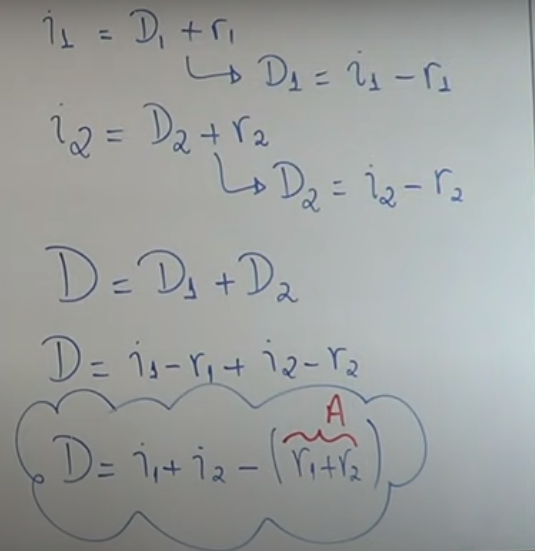 i₁ = D₁ + r₁
↳ D₁ = i₁ − r₁
i₂ = D₂ + r₂
↳ D₂ = i₂ − r₂
D = D₁ + D₂
D = i₁ − r₁ + i₂ − r₂
A
D = i₁ + i₂ − (r₁ + r₂)